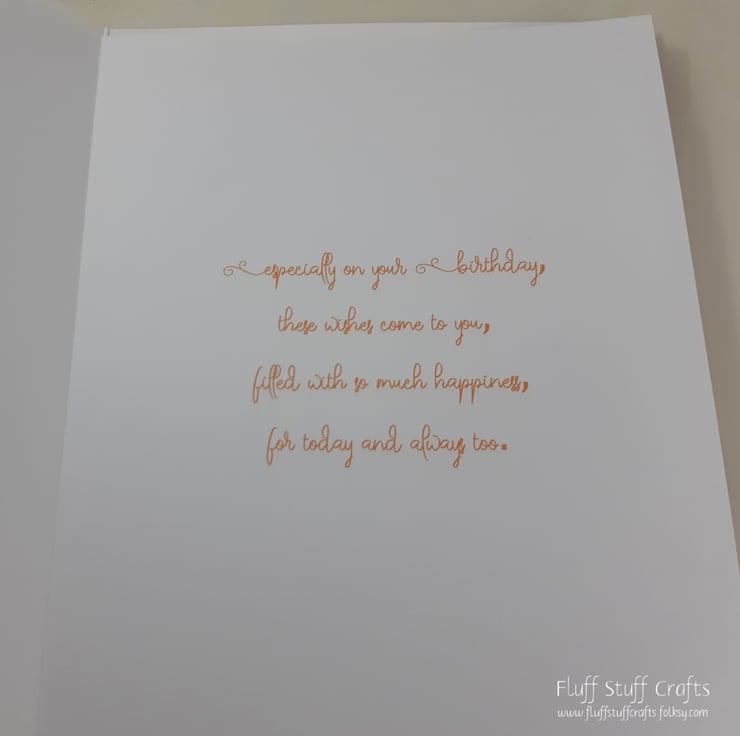 especially on your birthday,
these wishes come to you,
filled with so much happiness,
for today and always too.
Fluff Stuff Crafts
www.fluffstuffcrafts.folksy.com